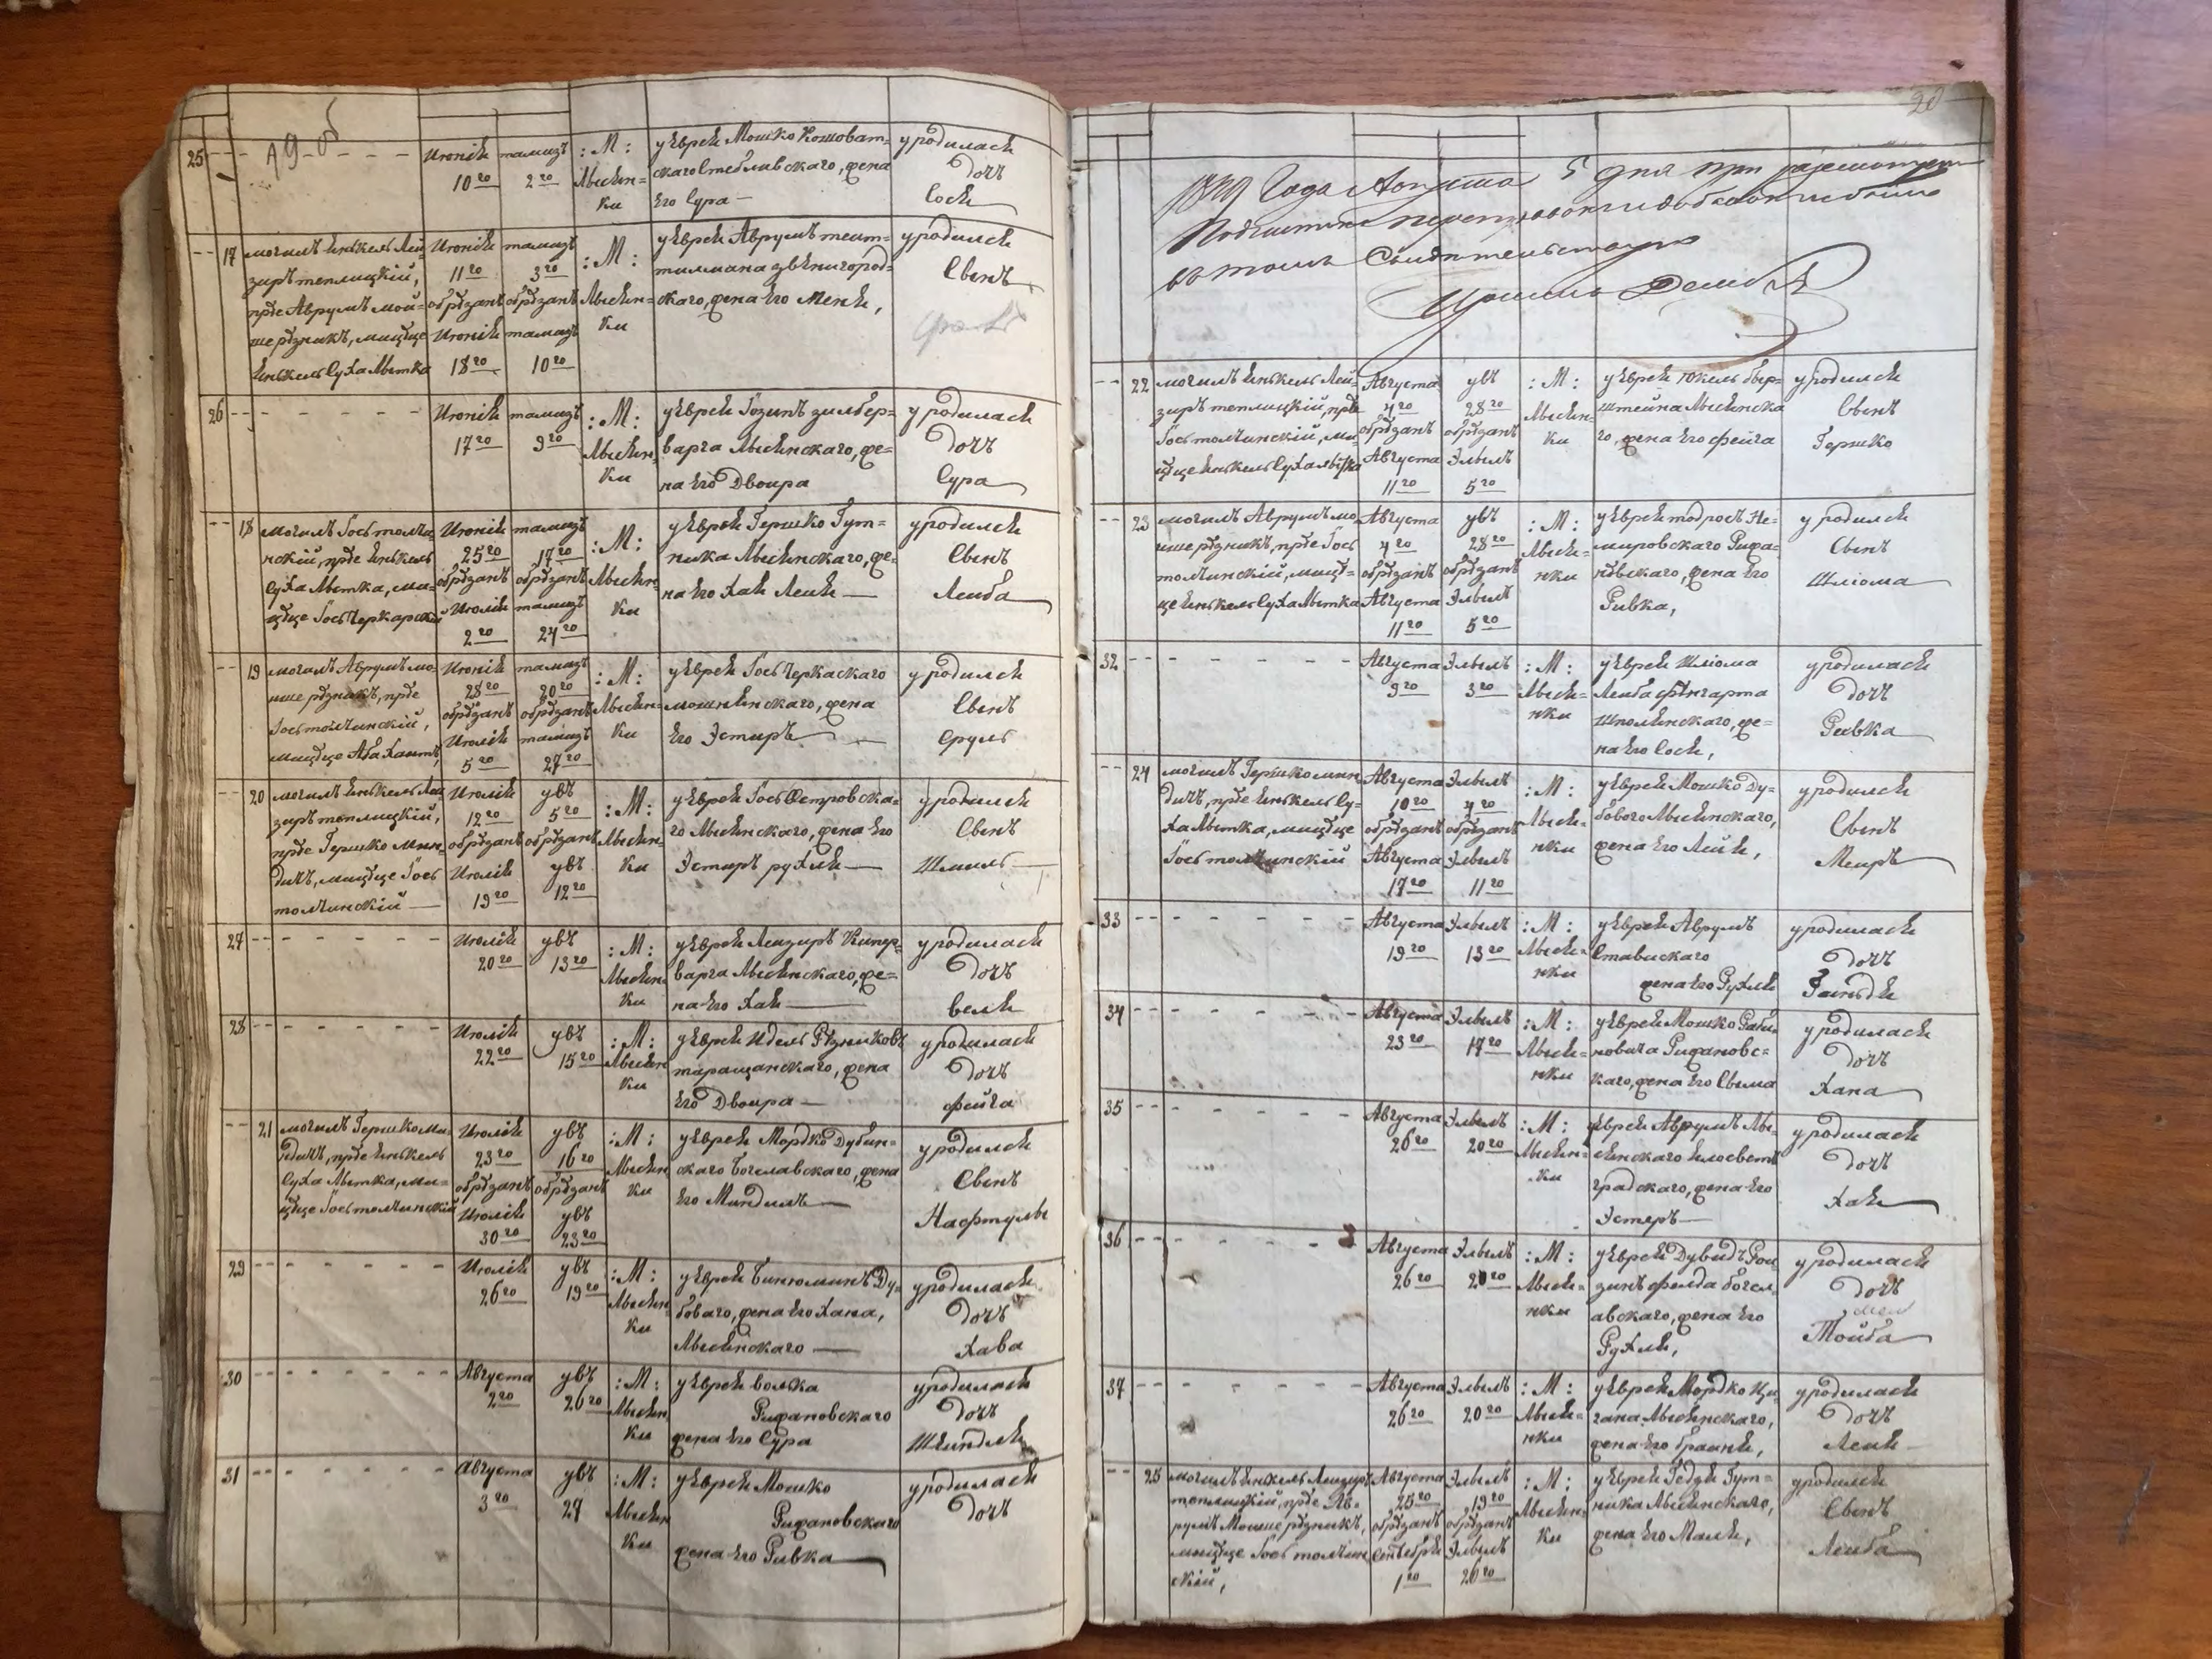 19-об
25
Июнія 10го
тамузъ 2го
:М: Лысян=
ки
у Еврея Мошко
скаго Стеблавскаго, жена
Его Сура —
уродиласи
дочъ
Сося
17
могилъ Янькель Лей=
зиръ теплицкій,
прѣе Аврумъ мой=
ше рѣзникъ, мицѣце
Янькель СухаЛытка
Июнія 11го
обрѣзанъ
Июнія 18го
тамузъ 3го
обрѣзанъ
тамузъ 10го
:М:
Лысян=
ки
у Еврея Аврумъ
звѣнигород=
скаго, жена Его Меня,
уродилси
Сынъ
26
Июнія 17го
тамузъ 9го
:М:
Лысян=
ки
у Еврея Гозипъ зилбер=
варга Лысянскаго, же=
на Его Двойра
уродиласи
дочъ
Сура
18
могилъ Гось толчи=
нскій, прѣе Янькель
СухаЛытка, ми=
цѣце Гось Черкаский
Июнія 25го
обрѣзанъ
Июлія 2го
тамузъ 17го
обрѣзанъ
тамузъ 24го
:М:
Лысян=
ки
у Еврея Гершко Гут=
ника Лысянскаго, же=
на Его Хая Лея —
уродилси
Сынъ
Лейба
19
могилъ Аврумъ мо=
йше рѣзникъ, прѣе
Гось толчинскій,
мицѣце Аба
Июнія 28го
обрѣзанъ
Июлія 5го
тамузъ 20го
обрѣзанъ
тамузъ 27го
:М:
Лысян=
ки
у Еврея Гось Черкаскаго
мошнянскаго, жена
Его Эстиръ —
уродилси
Сынъ
Сруль
20
могилъ Янькель Лей=
зиръ теплицкій,
прѣе Гершко Мин=
дичъ, мицѣце Гось
толчинскій —
Июлія 12го
обрѣзанъ
Июлія 19го
увъ 5го
обрѣзанъ
увъ 12го
:М:
Лысян=
ки
у Еврея Гось Островска=
го Лысянскаго, жена Его
Эстиръ рухля —
уродилси
Сынъ
Шмиль —
27
Июлія 20го
увъ 13го
:М:
Лысян=
ки
у Еврея Лейзиръ Купер=
варга Лысянскаго, же=
на Его Хая —
уродиласи
дочъ
веля
28
Июлія 22го
увъ 15го
:М:
Лысян
ки
у Еврея Идель Рѣзниковъ
таращанскаго, жена
Его Двойра —
уродиласи
дочъ
фейга
21
могилъ Гершко Ми=
ндичъ, прѣе Янькель
СухаЛытка, ми=
цѣце Гось толчинскій
Июлія 23го
обрѣзанъ
Июлія 30го
увъ 16го
обрѣзанъ
увъ 23го
:М:
Лысян
ки
у Еврея Мордко Дубин=
скаго Богславскаго, жена
Его Миндиль —
уродилси
Сынъ
Нафтулы
29
Июлія 26го
увъ 19го
:М:
Лысян
ки
у Еврея Бинюминъ Ду=
боваго, жена Его Хана,
Лысянскаго —
уродиласи
дочъ
Хава
30
Августа 2го
увъ 26го
:М:
Лысян
ки
у Еврея волька
Рижановскаго
жена Его Сура
уродиласи
дочъ
Шейндля
31
Августа 3го
увъ 27
:М:
Лысян
ки
у Еврея Мошко
Рижановскаго
жена Его Ривка —
уродиласи
дочъ
20
1839 Года Августа 5 дня при
22
могилъ Янькель Лей=
зиръ теплицкій, прѣе
Гось толчинскій, ми=
цѣце Янькель СухаЛытка
Августа 4го
обрѣзанъ
Августа 11го
увъ 28го
обрѣзанъ
Эльылъ 5го
:М:
Лысян=
ки
у Еврея Юкель бер=
штейна Лысянска
го, жена Его фейга
уродилси
Сынъ
Гершко
23
могилъ Аврумъ мо=
йше рѣзникъ, прѣе Гось
толчинскій, мицѣ=
це Янькель СухаЛытка
Августа 4го
обрѣзанъ
Августа 11го
увъ 28го
обрѣзанъ
Эльылъ 5го
:М:
Лыся=
нки
у Еврея тодросъ Не=
мировскаго Рижа=
новскаго, жена Его
Ривка,
уродилси
Сынъ
Шліома
32
Августа 9го
Эльылъ 3го
:М:
Лыся=
нки
у Еврея Шліома
Лейба
Шполянскаго, же=
на Его Сося,
уродиласи
дочъ
Ривка
24
могилъ Гершко мин
дичъ, прѣе Янькель Су=
хаЛытка, мицѣце
Гось толчинскій
Августа 10го
обрѣзанъ
Августа 17го
Эльылъ 4го
обрѣзанъ
Эльылъ 11го
:М:
Лыся=
нки
у Еврея Мошко Ду=
бового Лысянскаго,
жена Его Лейя,
уродилси
Сынъ
Меиръ
33
Августа 19го
Эльылъ 13го
:М:
Лыся=
нки
у Еврея Аврумъ
Ставискаго
жена Его Рухля
уродиласи
дочъ
Зайндя
34
Августа 23го
Эльылъ 17го
:М:
Лыся=
нки
у Еврея Мошко Раби=
новича Рижановс=
каго, жена Его Сыма
уродиласи
дочъ
Хана
35
Августа 26го
Эльылъ 20го
:М:
Лысян=
ки
у Еврея Аврумъ Лы=
сянскаго Елосветъ
градскаго, жена Его
Эстеръ —
уродиласи
дочъ
Хая
36
Августа 26го
Эльылъ 20го
:М:
Лыся=
нки
у Еврея Дувидъ Рой
зинъфелда богсл
авскаго, жена Его
Рухля,
уродиласи
дочъ
Тойба
37
Августа 26го
Эльылъ 20го
:М:
Лыся=
нки
у Еврея Мордко Ци=
гана Лысянскаго,
жена Его брайня,
уродиласи
дочъ
Лея —
25
могилъ Янкель Лейзиръ
теплицкій, прѣе Ав=
румъ Мойше рѣзникъ,
мицѣце Гось толчин
скій,
Августа 25го
обрѣзанъ
Сентебря 1го
Эльылъ 19го
обрѣзанъ
Эльылъ 26го
:М:
Лысян=
ки
у Еврея Гедзя Гут=
ника Лысянскаго,
жена Его Маля,
уродилси
Сынъ
Лейба